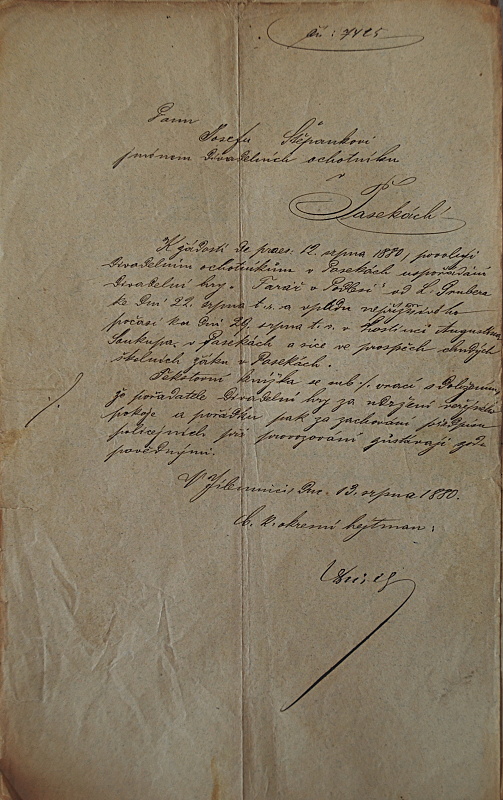 čís: 7425
Panu
Josefu Štěpánkovi
jménem divadelních ochotníku
v
Pasekách
K žádosti de praes. 12. srpna 1880, povoluji
divadelním ochotníkům v Pasekách uspořádání
divadelní hry „Farář v Podlesí“ od L. Grubera
ke dni 22. srpna t. s. a vpádu nepříznivého
počasí ku dni 29. srpna t. s. v hostinci Augustina
Soukupa v Pasekách a sice ve prospěch chudých
školních žáku v Pasekách.
Tekstovní knížka se sub ·/. vrací s doložením,
že pořadatelé divadelní hry za udržení veřejného
pokoje a pořádku pak za zachování předpisu
policejních při provozování zůstávají zod-
povědnými.
V Jilemnici dne 13. srpna 1880.
C. k. okresní hejtman:
·/.